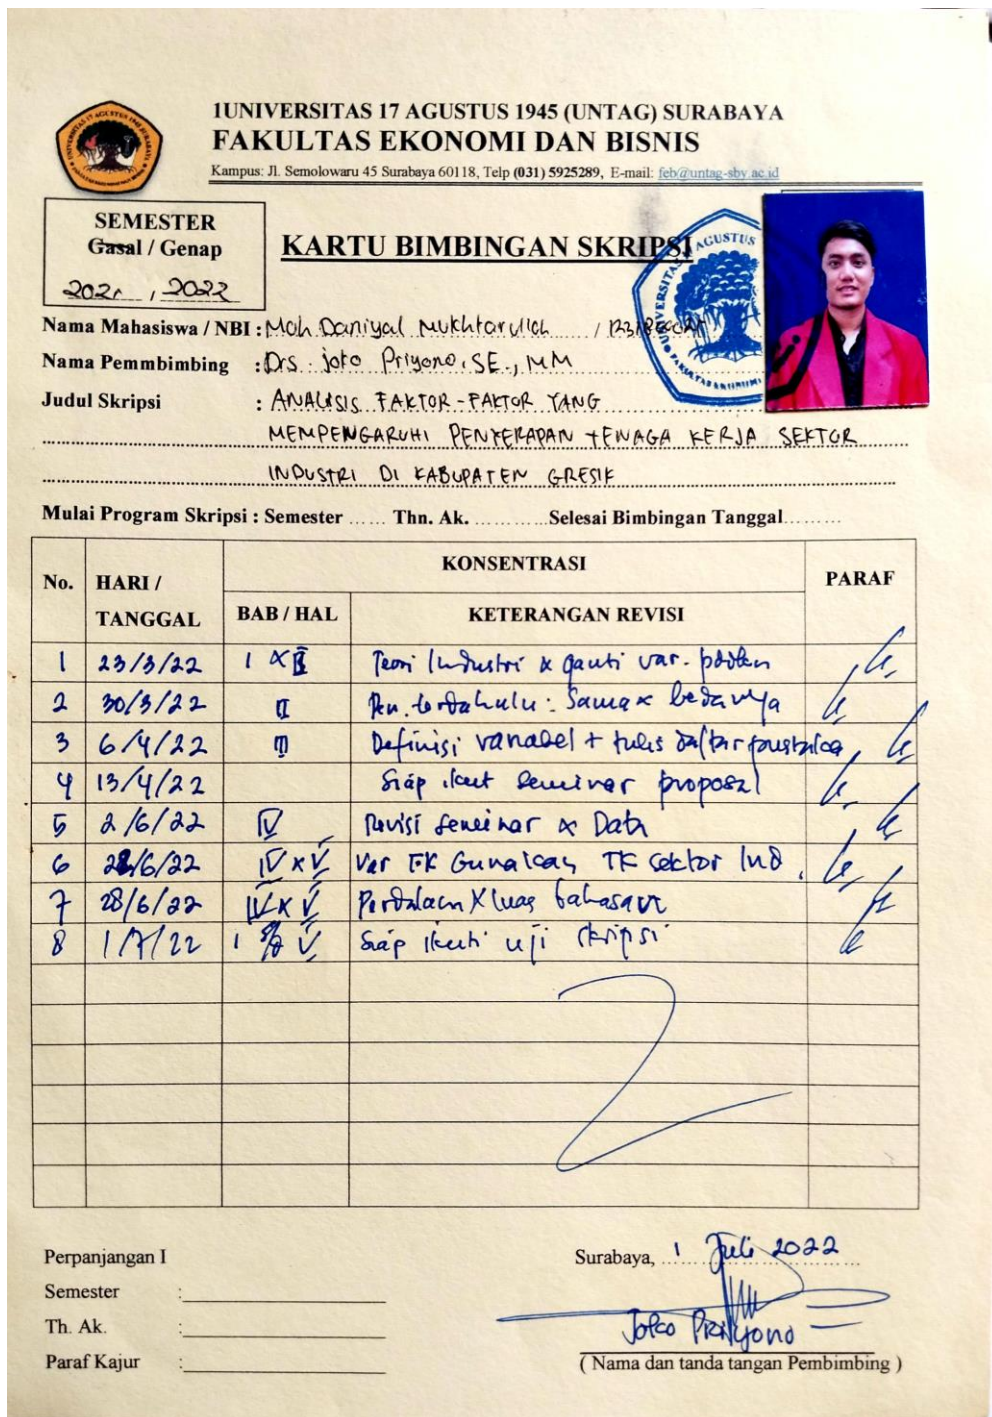 1UNIVERSITAS 17 AGUSTUS 1945 (UNTAG) SURABAYA
FAKULTAS EKONOMI DAN BISNIS
Kampus: Jl. Semolowaru 45 Surabaya 60118, Telp (031) 5925289, E-mail: feb@untag-sby.ac.id
SEMESTER
Gasal / Genap
2021, 2022
KARTU BIMBINGAN SKRIPSI
Nama Mahasiswa / NBI : Moh Daniyal Mukhtarullah /
Nama Pemmbimbing : Drs. Joko Priyono, SE., MM
Judul Skripsi : ANALISIS FAKTOR-FAKTOR YANG
MEMPENGARUHI PENYERAPAN TENAGA KERJA SEKTOR
INDUSTRI DI KABUPATEN GRESIK
Mulai Program Skripsi : Semester ...... Thn. Ak. .......... Selesai Bimbingan Tanggal.........
No. HARI / TANGGAL KONSENTRASI PARAF
BAB / HAL KETERANGAN REVISI
1 23/3/22 I & II Teori Industri & ganti var.
2 30/3/22 II Pen. terdahulu: Sama & bedanya
3 6/4/22 III Definisi variabel + tulis daftar pustaka
4 13/4/22 Siap ikut seminar proposal
5 2/6/22 IV Revisi seminar & Data
6 /6/22 IV & V Var TK Gunakan TK sektor Ind.
7 28/6/22 IV & V Perdalam & luas bahasan
8 1/7/22 I V Siap ikuti uji skripsi
Perpanjangan I
Semester :
Th. Ak. :
Paraf Kajur :
Surabaya, 1 Juli 2022
Joko Priyono
( Nama dan tanda tangan Pembimbing )